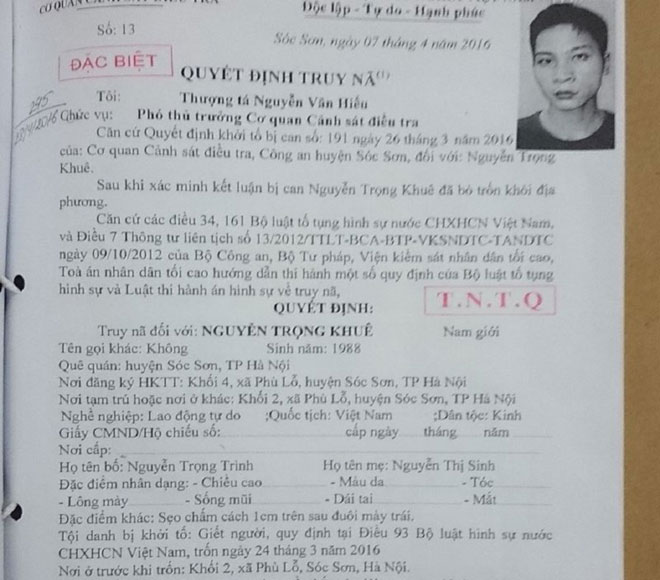 CƠ QUAN
Độc lập - Tự do - Hạnh phúc
Số: 13
Sóc Sơn, ngày 07 tháng 4 năm 2016
ĐẶC BIỆT
QUYẾT ĐỊNH TRUY NÃ(1)
Tôi: Thượng tá Nguyễn Văn Hiếu
295
Chức vụ: Phó thủ trưởng Cơ quan Cảnh sát điều tra
Căn cứ Quyết định khởi tố bị can số: 191 ngày 26 tháng 3 năm 2016
của: Cơ quan Cảnh sát điều tra, Công an huyện Sóc Sơn, đối với: Nguyễn Trọng
Khuê.
Sau khi xác minh kết luận bị can Nguyễn Trọng Khuê đã bỏ trốn khỏi địa
phương.
Căn cứ các điều 34, 161 Bộ luật tố tụng hình sự nước CHXHCN Việt Nam,
và Điều 7 Thông tư liên tịch số 13/2012/TTLT-BCA-BTP-VKSNDTC-TANDTC
ngày 09/10/2012 của Bộ Công an, Bộ Tư pháp, Viện kiểm sát nhân dân tối cao,
Toà án nhân dân tối cao hướng dẫn thi hành một số quy định của Bộ luật tố tụng
hình sự và Luật thi hành án hình sự về truy nã,
QUYẾT ĐỊNH:
T.N.T.Q
Truy nã đối với: NGUYỄN TRỌNG KHUÊ Nam giới
Tên gọi khác: Không Sinh năm: 1988
Quê quán: huyện Sóc Sơn, TP Hà Nội
Nơi đăng ký HKTT: Khối 4, xã Phù Lỗ, huyện Sóc Sơn, TP Hà Nội
Nơi tạm trú hoặc nơi ở khác: Khối 2, xã Phù Lỗ, huyện Sóc Sơn, TP Hà Nội
Nghề nghiệp: Lao động tự do ;Quốc tịch: Việt Nam ;Dân tộc: Kinh
Giấy CMND/Hộ chiếu số: cấp ngày tháng năm
Nơi cấp:
Họ tên bố: Nguyễn Trọng Trình Họ tên mẹ: Nguyễn Thị Sinh
Đặc điểm nhân dạng: - Chiều cao - Màu da - Tóc
- Lông mày - Sống mũi - Dái tai - Mắt
Đặc điểm khác: Sẹo chấm cách 1cm trên sau đuôi mày trái.
Tội danh bị khởi tố: Giết người, quy định tại Điều 93 Bộ luật hình sự nước
CHXHCN Việt Nam, trốn ngày 24 tháng 3 năm 2016
Nơi ở trước khi trốn: Khối 2, xã Phù Lỗ, Sóc Sơn, Hà Nội.